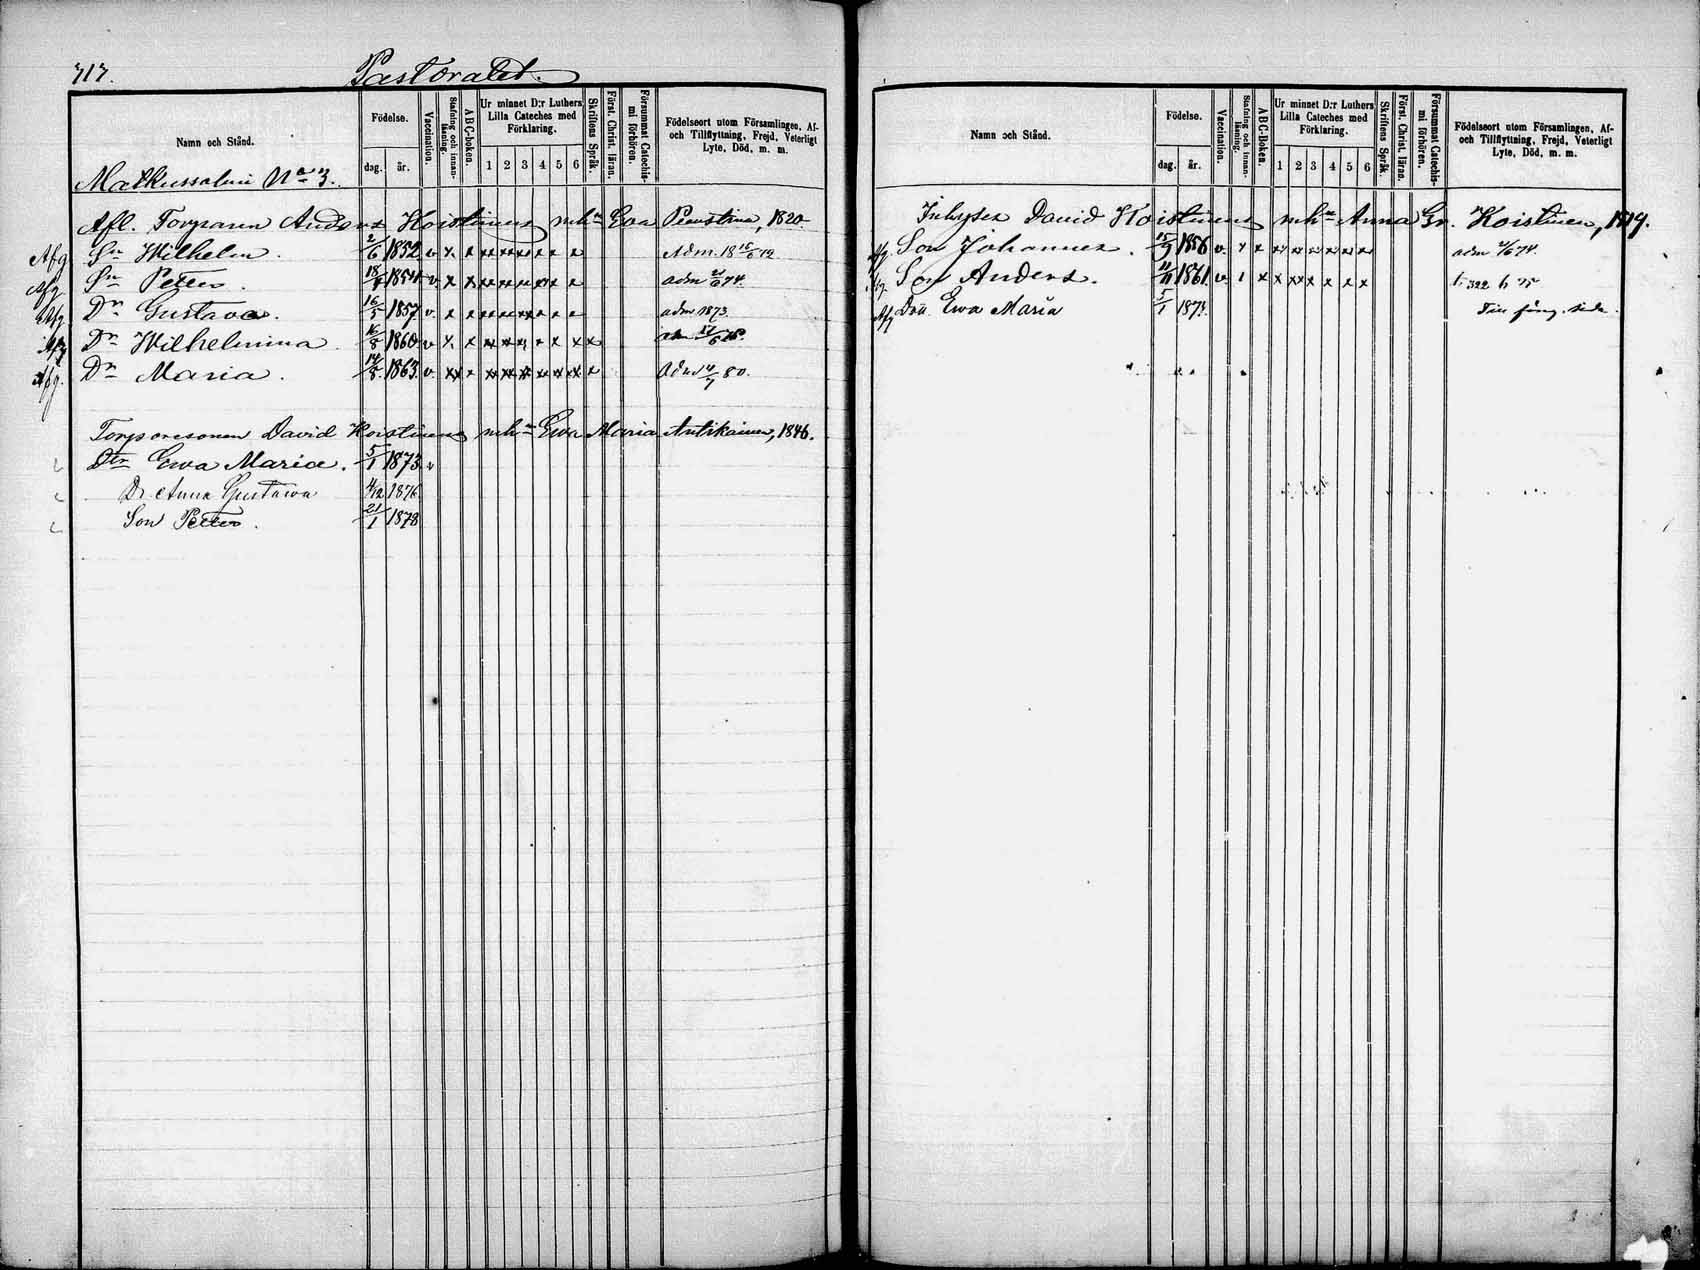 717. Pastoratet.
Namn och Stånd.
Födelse.
dag. år.
Vaccination.
Stafning och innanläsning.
ABC-boken.
Ur minnet D:r Luthers Lilla Cateches med Förklaring.
1 2 3 4 5 6
Skriftens Språk.
Först. Christ. läran.
Försummat Catechismi förhören.
Födelseort utom Församlingen, Af- och Tillflyttning, Frejd, Veterligt Lyte, Död, m. m.
Matkussalmi No 3.
Afl. Torparen Anders Koistinens enk:s Eva Pieustina, 1820.
Afg Sn Wilhelm. 2/6 1852 v x x x x x x x x Adm. 18 16/6 72
Afg Sn Petter. 18/4 1854 v x x x x x x x x adm 21/6 74.
Afg Dr Gustava. 16/5 1857 v. x x x x x x x x adm 1873.
Afg Dr Wilhelmina 16/8 1860 v x x x x x x x x x adm 17/6 78.
Afg. Dr Maria. 14/8 1863 v. xx x x x x x x x x Adm 4/7 80.
Torparesonen David Koistinens enk:s Ewa Maria Antikainen, 1846.
Dtr Ewa Maria. 5/1 1873 v
Dr Anna Gustava 4/12 1876
Son Petter. 21/1 1878
Namn och Stånd.
Födelse.
dag. år.
Vaccination.
Stafning och innanläsning.
ABC-boken.
Ur minnet D:r Luthers Lilla Cateches med Förklaring.
1 2 3 4 5 6
Skriftens Språk.
Först. Christ. läran.
Försummat Catechismi förhören.
Födelseort utom Församlingen, Af- och Tillflyttning, Frejd, Veterligt Lyte, Död, m. m.
Inhyses David Koistinens enk:s Anna Gr. Koistinen, 1819.
Afg. Son Johannes. 15/9 1856 v. x x x x x x x x adm 21/6 74.
Afg. Son Anders. 1861 v. 1 x x x x x x x t. 322 b 75
Afg Dtr. Ewa Maria 5/1 1873. Till föreg. sida.